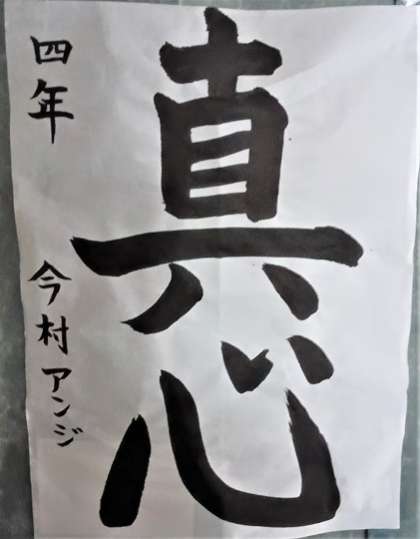 真心
四年
今村アンジ